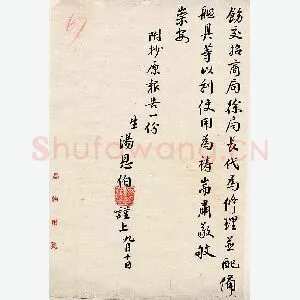 飭交招商局徐局長代為修理並配備
船具等以利使用為禱耑肅敬收
崇安
附抄原報告一份
生湯恩伯謹上九月十日